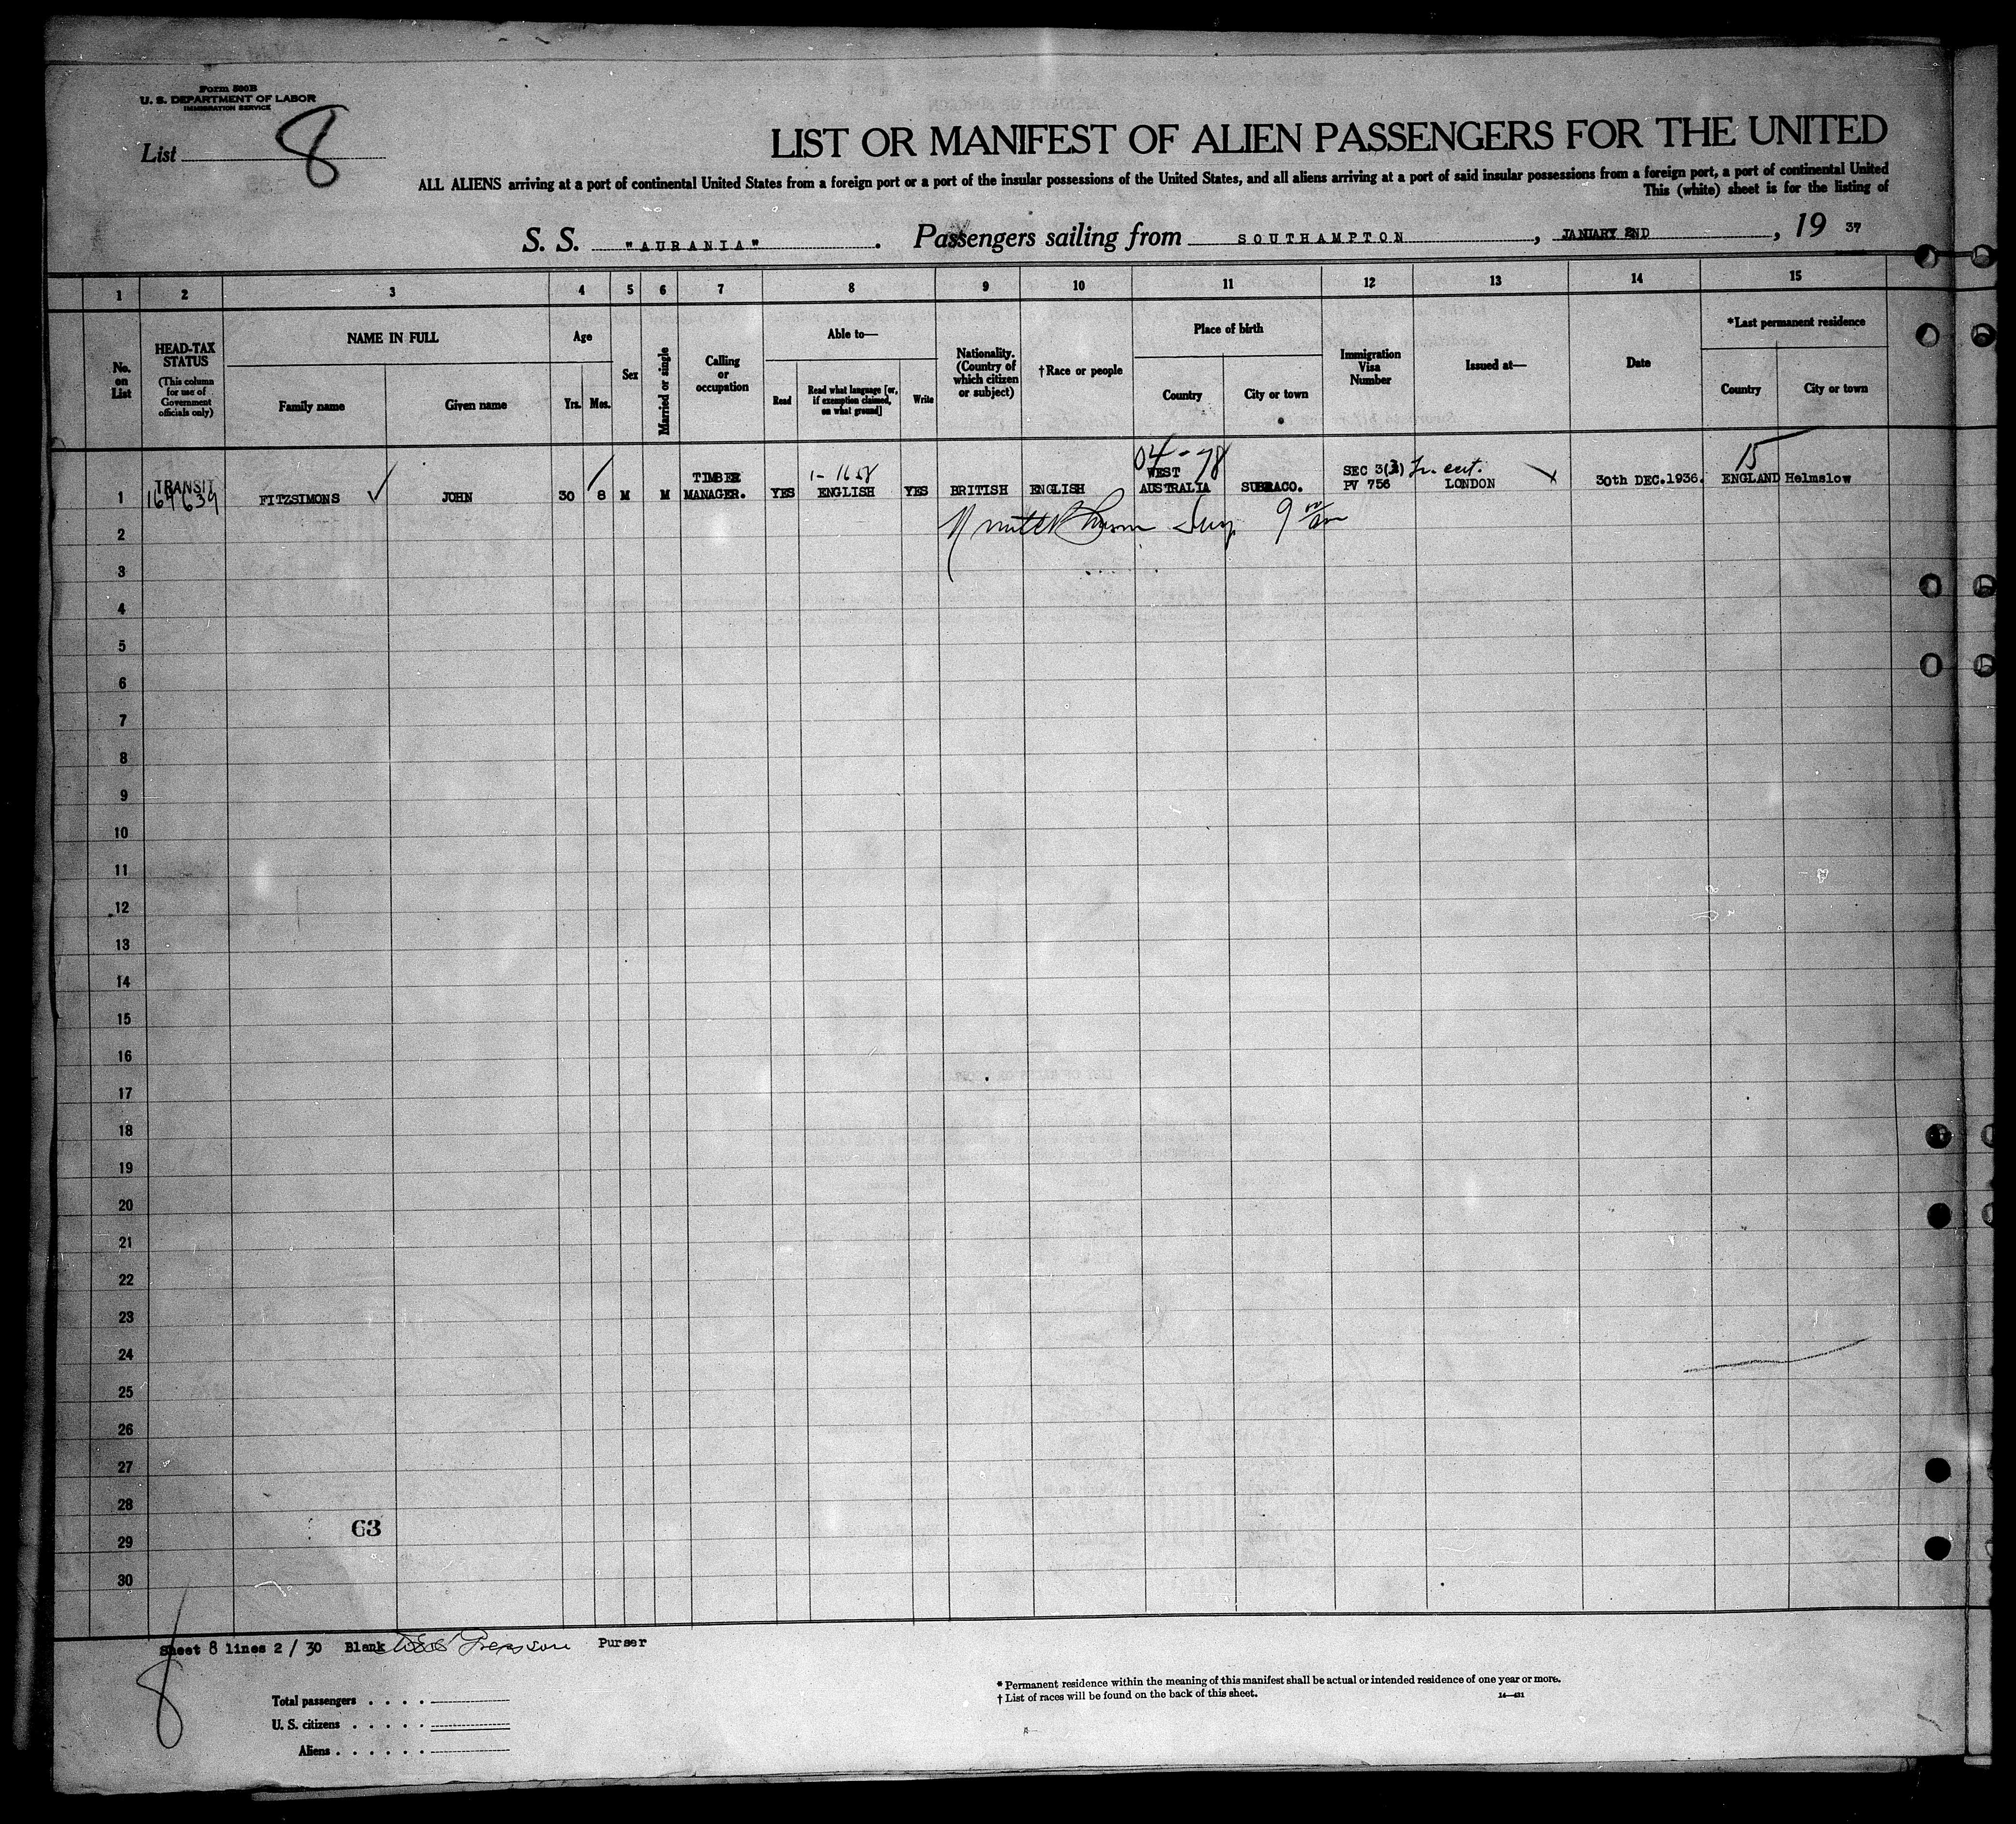 Form 500B
U. S. DEPARTMENT OF LABOR
IMMIGRATION SERVICE
List 8
LIST OR MANIFEST OF ALIEN PASSENGERS FOR THE UNITED
ALL ALIENS arriving at a port of continental United States from a foreign port or a port of the insular possessions of the United States, and all aliens arriving at a port of said insular possessions from a foreign port, a port of continental United
This (white) sheet is for the listing of
S. S. "AURANIA". Passengers sailing from SOUTHAMPTON, JANUARY 2ND, 19 37
1 2 3 4 5 6 7 8 9 10 11 12 13 14 15
No. on List
HEAD-TAX STATUS
(This column for use of Government officials only)
NAME IN FULL
Family name
Given name
Age
Yrs.
Mos.
Sex
Married or single
Calling or occupation
Able to—
Read
Read what language [or, if exemption claimed, on what ground]
Write
Nationality. (Country of which citizen or subject)
†Race or people
Place of birth
Country
City or town
Immigration Visa Number
Issued at—
Date
*Last permanent residence
Country
City or town
04-78
15
1 TRANSIT FITZSIMONS JOHN 30 8 M M TIMBER MANAGER. YES ENGLISH YES BRITISH ENGLISH WEST AUSTRALIA SUBRACO. PV 756 LONDON 30th DEC.1936. ENGLAND Helmslow
2
3
4
5
6
7
8
9
10
11
12
13
14
15
16
17
18
19
20
21
22
23
24
25
26
27
28
63
29
30
Sheet 8 lines 2 / 30 Blank Purser
8
Total passengers
U. S. citizens
Aliens
* Permanent residence within the meaning of this manifest shall be actual or intended residence of one year or more.
† List of races will be found on the back of this sheet.